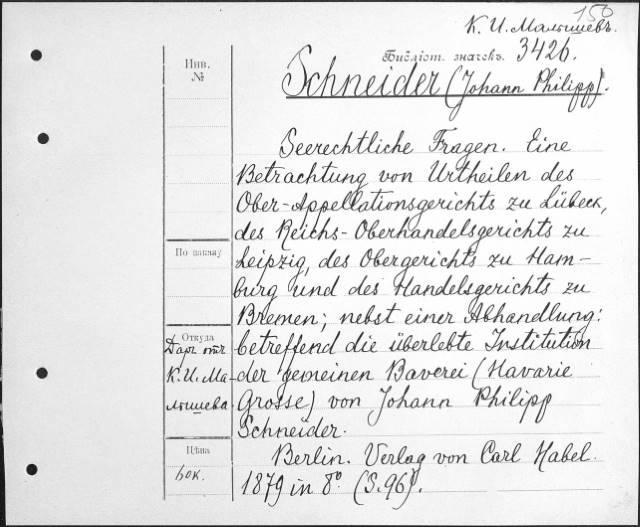 150
К. И. Малышевъ.
Библіот. значекъ. 3426.
Инв.
№
Schneider (Johann Philipp).
Seerechtliche Fragen. Eine
Betrachtung von Urtheilen des
Ober-Appellationsgerichts zu Lübeck,
des Reichs-Oberhandelsgerichts zu
Leipzig, des Obergerichts zu Ham-
burg und des Handelsgerichts zu
Bremen; nebst einer Abhandlung:
betreffend die überlebte Institution
der gemeinen Baverei (Havarie
Grosse) von Johann Philipp
Schneider.
Berlin. Verlag von Carl Habel.
1879 in 8º (S. 96).
По шкапу
Откуда
Даръ отъ
К. И. Ма-
лышева.
Цѣна